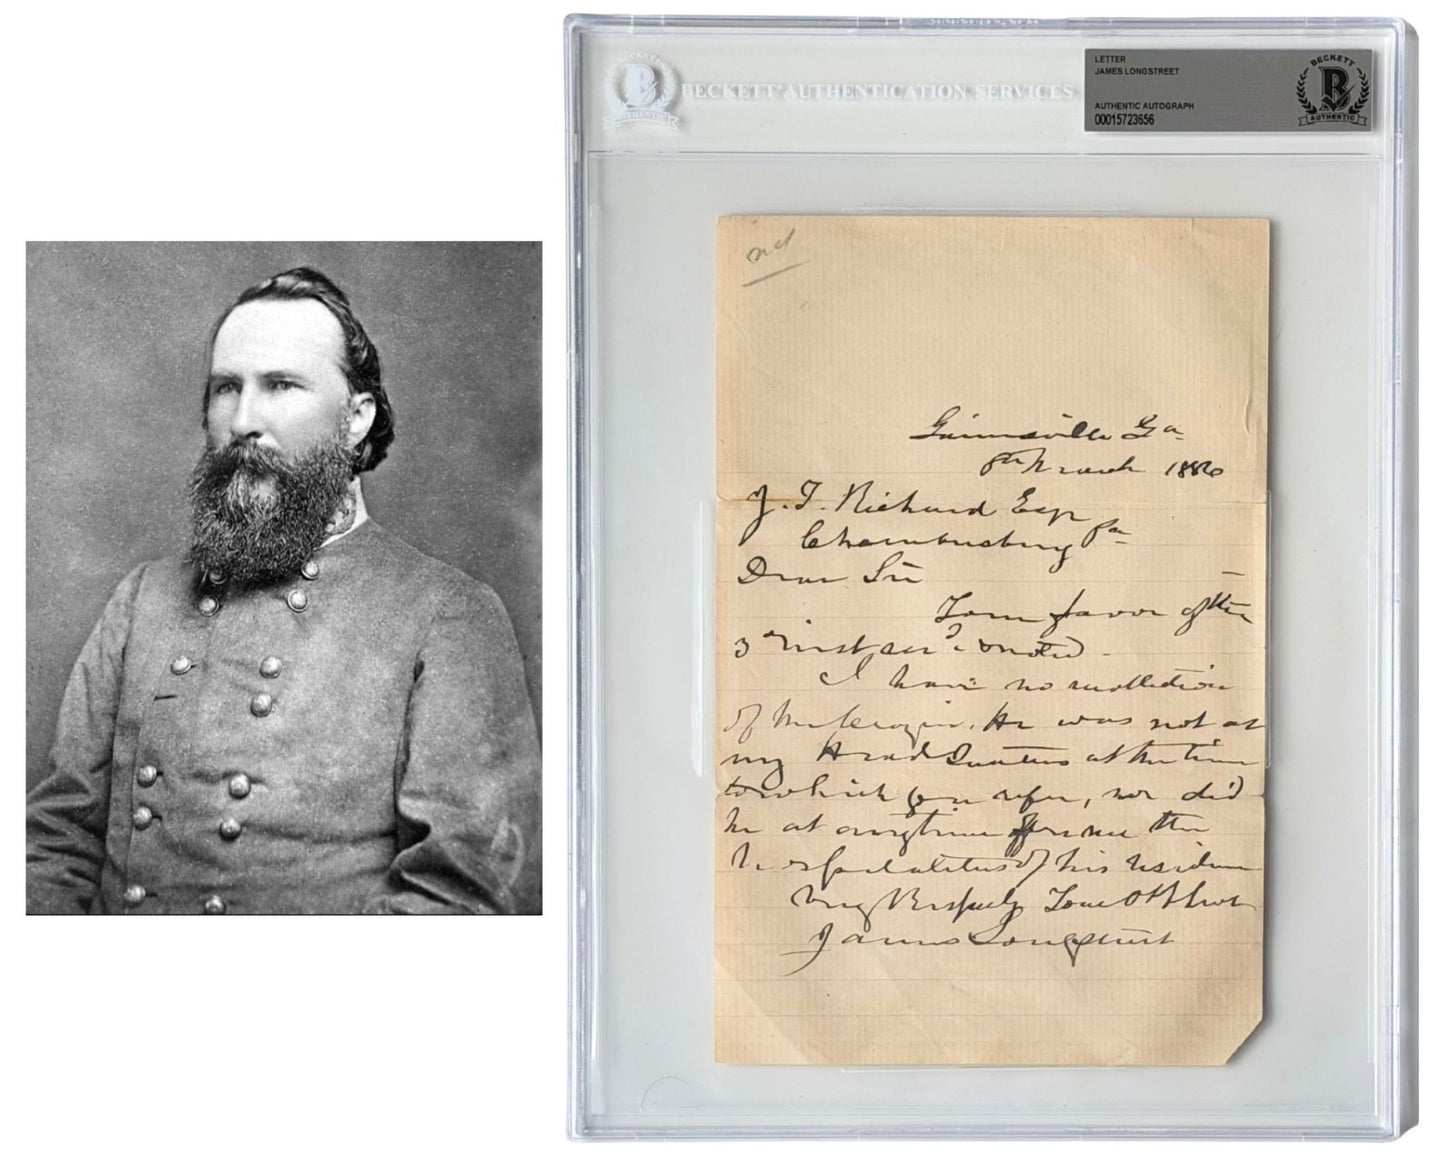 BECKETT AUTHENTICATION SERVICES
BECKETT
AUTHENTIC
LETTER
JAMES LONGSTREET
AUTHENTIC AUTOGRAPH
00015723656
BECKETT
B
AUTHENTIC
Gainesville Ga
8th March 1886
J. T. Richard Esqr
Chambersburg Pa
Dear Sir
Your favor of the
3rd inst rec'd & noted.
I have no recollection
of He was not at
my Head Quarters at the time
to which you refer, nor did
he at anytime offer me the
hospitalities of his residence
Very Respectfully Your Obt Servt
James Longstreet